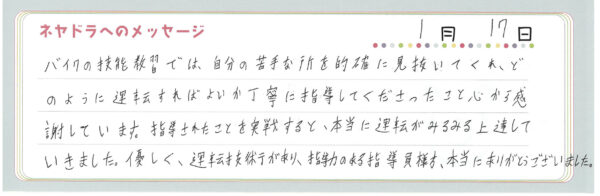 ネヤドラへのメッセージ
1月 17日
バイクの技能教習では、自分の苦手な所を的確に見抜いてくれ、ど
のように運転すればよいか丁寧に指導してくださったこと心から感
謝しています。指導されたことを実戦すると、本当に運転がみるみる上達して
いきました。優しく、運転技術があり、指導力のある指導員様方、本当にありがとうございました。